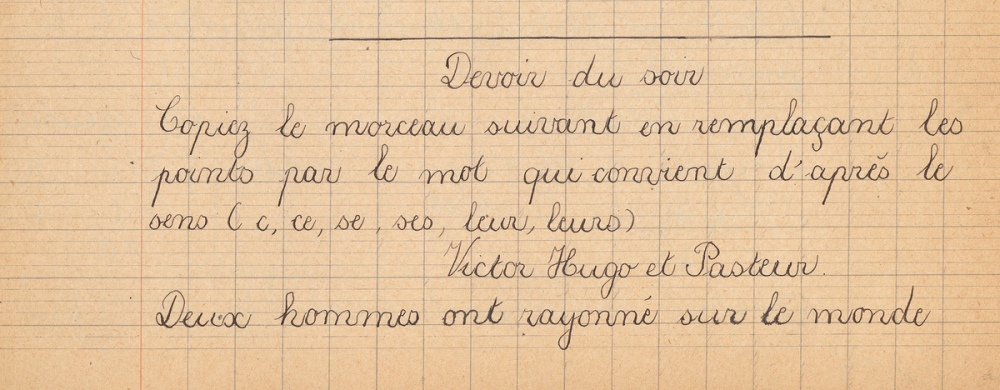 Devoir du soir
Copiez le morceau suivant en remplaçant les
points par le mot qui convient d'après le
sens (c, ce, se, ses, leur, leurs)
Victor Hugo et Pasteur.
Deux hommes ont rayonné sur le monde